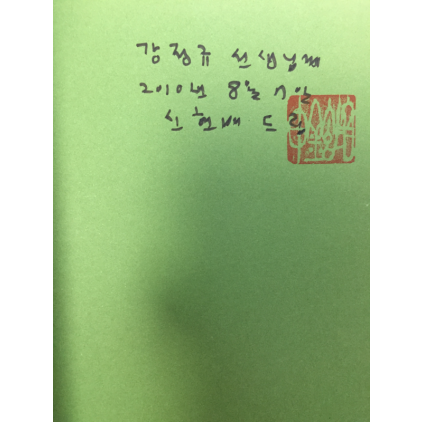 강정규 선생님께
2010년 8월 7일
신현배 드림